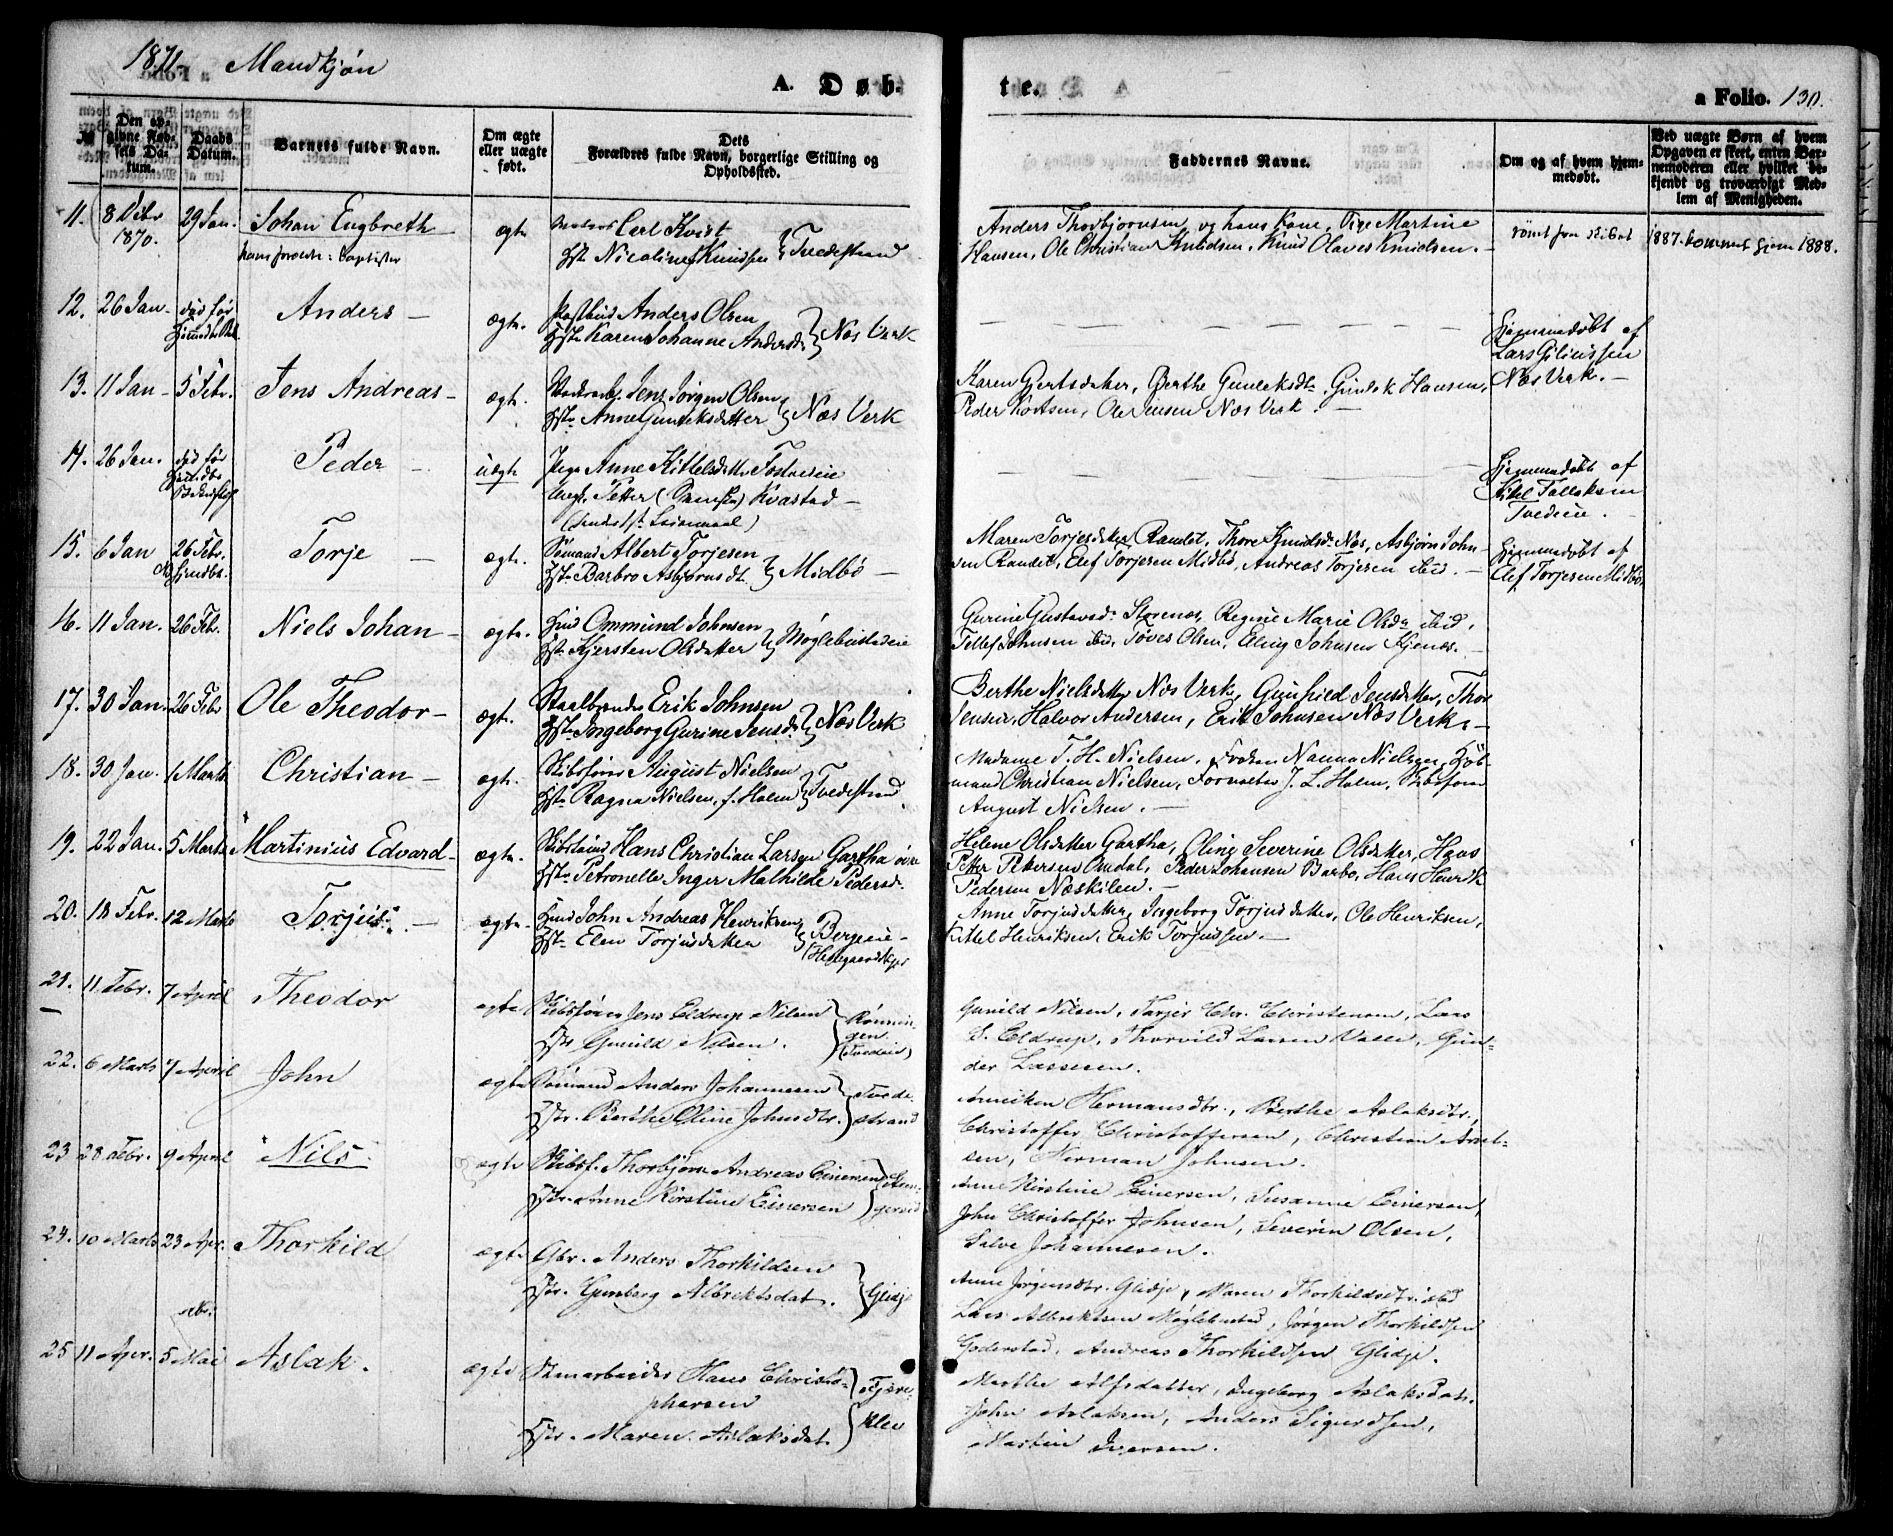 1871. Mandkjøn
A. Døb-
te.
a Folio. 130.
№
Den op-
givne Fød-
sels Da-
tum.
Daabs
Datum.
Barnets fulde Navn.
Om ægte
eller uægte
født.
Dets
Forældres fulde Navn, borgerlige Stilling og
Opholdssted.
Faddernes Navne.
Om og af hvem hjem-
medøbt.
Ved uægte Børn af hvem
Opgaven er skeet, enten Bar-
nemoderen eller hvilket be-
kjendt og troværdigt Med-
lem af Menigheden.
11. 8 Decbr 1870. 29 Jan. Johan Engbreth ægte Carl Kvist
Hst. Nicoline Knudsen } Tvedestrand
hans forældre: Baptister
Anders Thorbjørnsen og hans Kone, Pige Martine
Hansen, Ole Christian Knudsen, Knud Olaves Knudsen. -
1887. kommet hjem 1888.
12. 26 Jan. død før Anders - ægte. Postbud Anders Olsen
Hst. Karen Johanne Andersdr. } Næs Verk
Hjemmedøbt af
Lars
Næs Verk. -
13. 11 Jan - 5 Febr. Jens Andreas - ægte. Jens Jørgen Olsen
Hst. Anne Gunleksdatter } Næs Verk
Karen Gjertsdatter, Berthe Gunleksdtr. Gunlek Hansen,
Peder Knutsen, Ole Jensen Næs Verk. -
14. 26 Jan. død før Peder - uægte. Pige Anne Kittelsdatter
Ungk. Petter (Svensk) Kvastad -
Hjemmedøbt af
Kittel Tallaksen
Tvedene.
15. 6 Jan 26 Febr. Torje - ægte. Sømand Albert Torjesen
Hst. Barbro Asbjørnsdt. } Midbø -
Maren Torjesdatter Randet, Thore Knudsdr. Næs, Asbjørn John-
sen Randet, Elef Torjesen Midbø, Andreas Torjesen ibid. -
Hjemmedøbt af
Elef Torjesen Midbø
16. 11 Jan. 26 Febr. Niels Johan - ægte. Ommund Johnsen
Hst. Kjersten Olsdatter } Møglebustadeie
Gurine Gustavsdr. Storenæs, Regine Marie Olsdr. ibid,
Tellef Johnsen ibid, Toves Olsen, Eling Johnsen Kjenæs. -
17. 30 Jan. 26 Febr Ole Theodor - ægte. Staalbrænder Erik Johnsen
Hst. Ingeborg Gurine Jensdr. } Næs Verk
Berthe Nielsdatter Næs Verk, Gunhild Jensdatter, Thor
Jensen, Halvor Andersen, Erik Johnsen Næs Verk. -
18. 30 Jan. 1 Marts Christian - ægte. Skibsfører August Nielsen
Hst. Ragna Nielsen, f. Holm } Tvedestrand
Madame T. H. Nielsen, Frøken Nanna Nielsen, Kjøb-
mand Christian Nielsen, Forvalter J. L. Holm, Skibsfører
August Nielsen. -
19. 22 Jan. 5 Marts Martinius Edvard - ægte. Hans Christian Larsen Gartha øvre
Hst. Petronelle Inger Mathilde Pedersdr.
Helene Olsdatter Gartha, Oling Severine Olsdatter, Hans
Petter Pettersen Omdal, Peder Johansen Barbo, Hans Henrik
Pedersen Næskilen. -
20. 18 Febr. 12 Marts Torjus. - ægte. John Andreas Henriksen
Hst. Elen Torjusdatter } Bergeneie -
Anne Torjusdatter, Ingeborg Torjusdatter, Ole Henriksen,
Kittel Henriksen, Erik Torjussen. -
21. 11 Febr. 7 April Theodor ægte Skibsfører Jens Eldrup Nilsen
Hstr. Gunild Nilsen. } Rønnin-
gen.
(Tvedeeie)
Gunild Nilsen, Tarjer Chr. Christensen, Lars
S. Eldrup, Thorvild Larsen Valle, Gun-
der Lassesen.
22. 6 Marts 7 April John ægte Sømand Anders Johannesen
Hstr. Berthe Oline Johnsdtr. } Tvede-
strand
Anniken Hermansdtr., Berthe Aslaksdtr,
Christoffer Christoffersen, Christian Arnt-
sen, Herman Johnsen.
23 28 Febr. 9 April Nils. ægte Skibsf. Thorbjørn Andreas Einersen
Hstr. Anne Kirstine Einersen
Anne Kirstine Einersen, Susanne Einersen,
John Christoffer Johnsen, Severin Olsen,
Salve Johannesen.
24. 10 Marts 23 Apr. Thorkild ægte Gbr. Anders Thorkildsen
Hstr. Gunberg Albrektsdat. } Glidje
Anne Jørgensdtr. Glidje, Maren Thorkildsdtr. ibid
Lars Albrektsen Møglebustad, Jørgen Thorkildsen
Goderstad, Andreas Thorkildsen Glidje.
25 11 Apr. 5 Mai Aslak. ægte Stenarbeider Hans Christo-
phersen
Hstr. Maren Aslaksdat. } Fjære-
klev
Marthe Alfsdatter, Ingeborg Aslaksdat.
John Aslaksen, Anders Sigurdsen,
Martin Iversen.